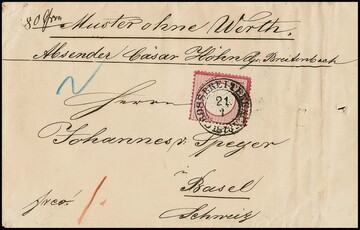 80 Grm
Muster ohne Werth.
Absender Cäsar Höhn Gr. Breitenbach
2
Herrn
21
Johannes v. Speyer
Basel
franco.
1.
Schweiz